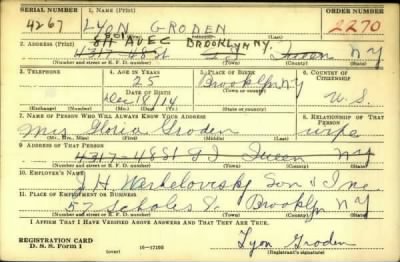 SERIAL NUMBER 1. NAME (Print) ORDER NUMBER
4267 LYON GRODEN 2270
801 AVE C BROOKLYN NY.
2. ADDRESS (Print)
4317-48 St Queen NY
(Number and street or R. F. D. number) (Town) (County) (State)
3. TELEPHONE 4. AGE IN YEARS 5. PLACE OF BIRTH 6. COUNTRY OF CITIZENSHIP
25 Brooklyn NY
DATE OF BIRTH
Dec 18/14 U.S.
(Exchange) (Number) (Mo.) (Day) (Yr.) (Town or county) (State or country)
7. NAME OF PERSON WHO WILL ALWAYS KNOW YOUR ADDRESS 8. RELATIONSHIP OF THAT PERSON
Mrs. Gloria Groden wife
(Mr., Mrs., Miss) (First) (Middle) (Last)
9. ADDRESS OF THAT PERSON
4317-48 St Queen NY
(Number and street or R. F. D. number) (Town) (County) (State)
10. EMPLOYER'S NAME
J. H. Son & Inc
11. PLACE OF EMPLOYMENT OR BUSINESS
57 Scholes St. Brooklyn NY
(Number and street or R. F. D. number) (Town) (County) (State)
I AFFIRM THAT I HAVE VERIFIED ABOVE ANSWERS AND THAT THEY ARE TRUE.
REGISTRATION CARD
D. S. S. Form 1 (over) 16—17105
Lyon Groden
(Registrant's signature)